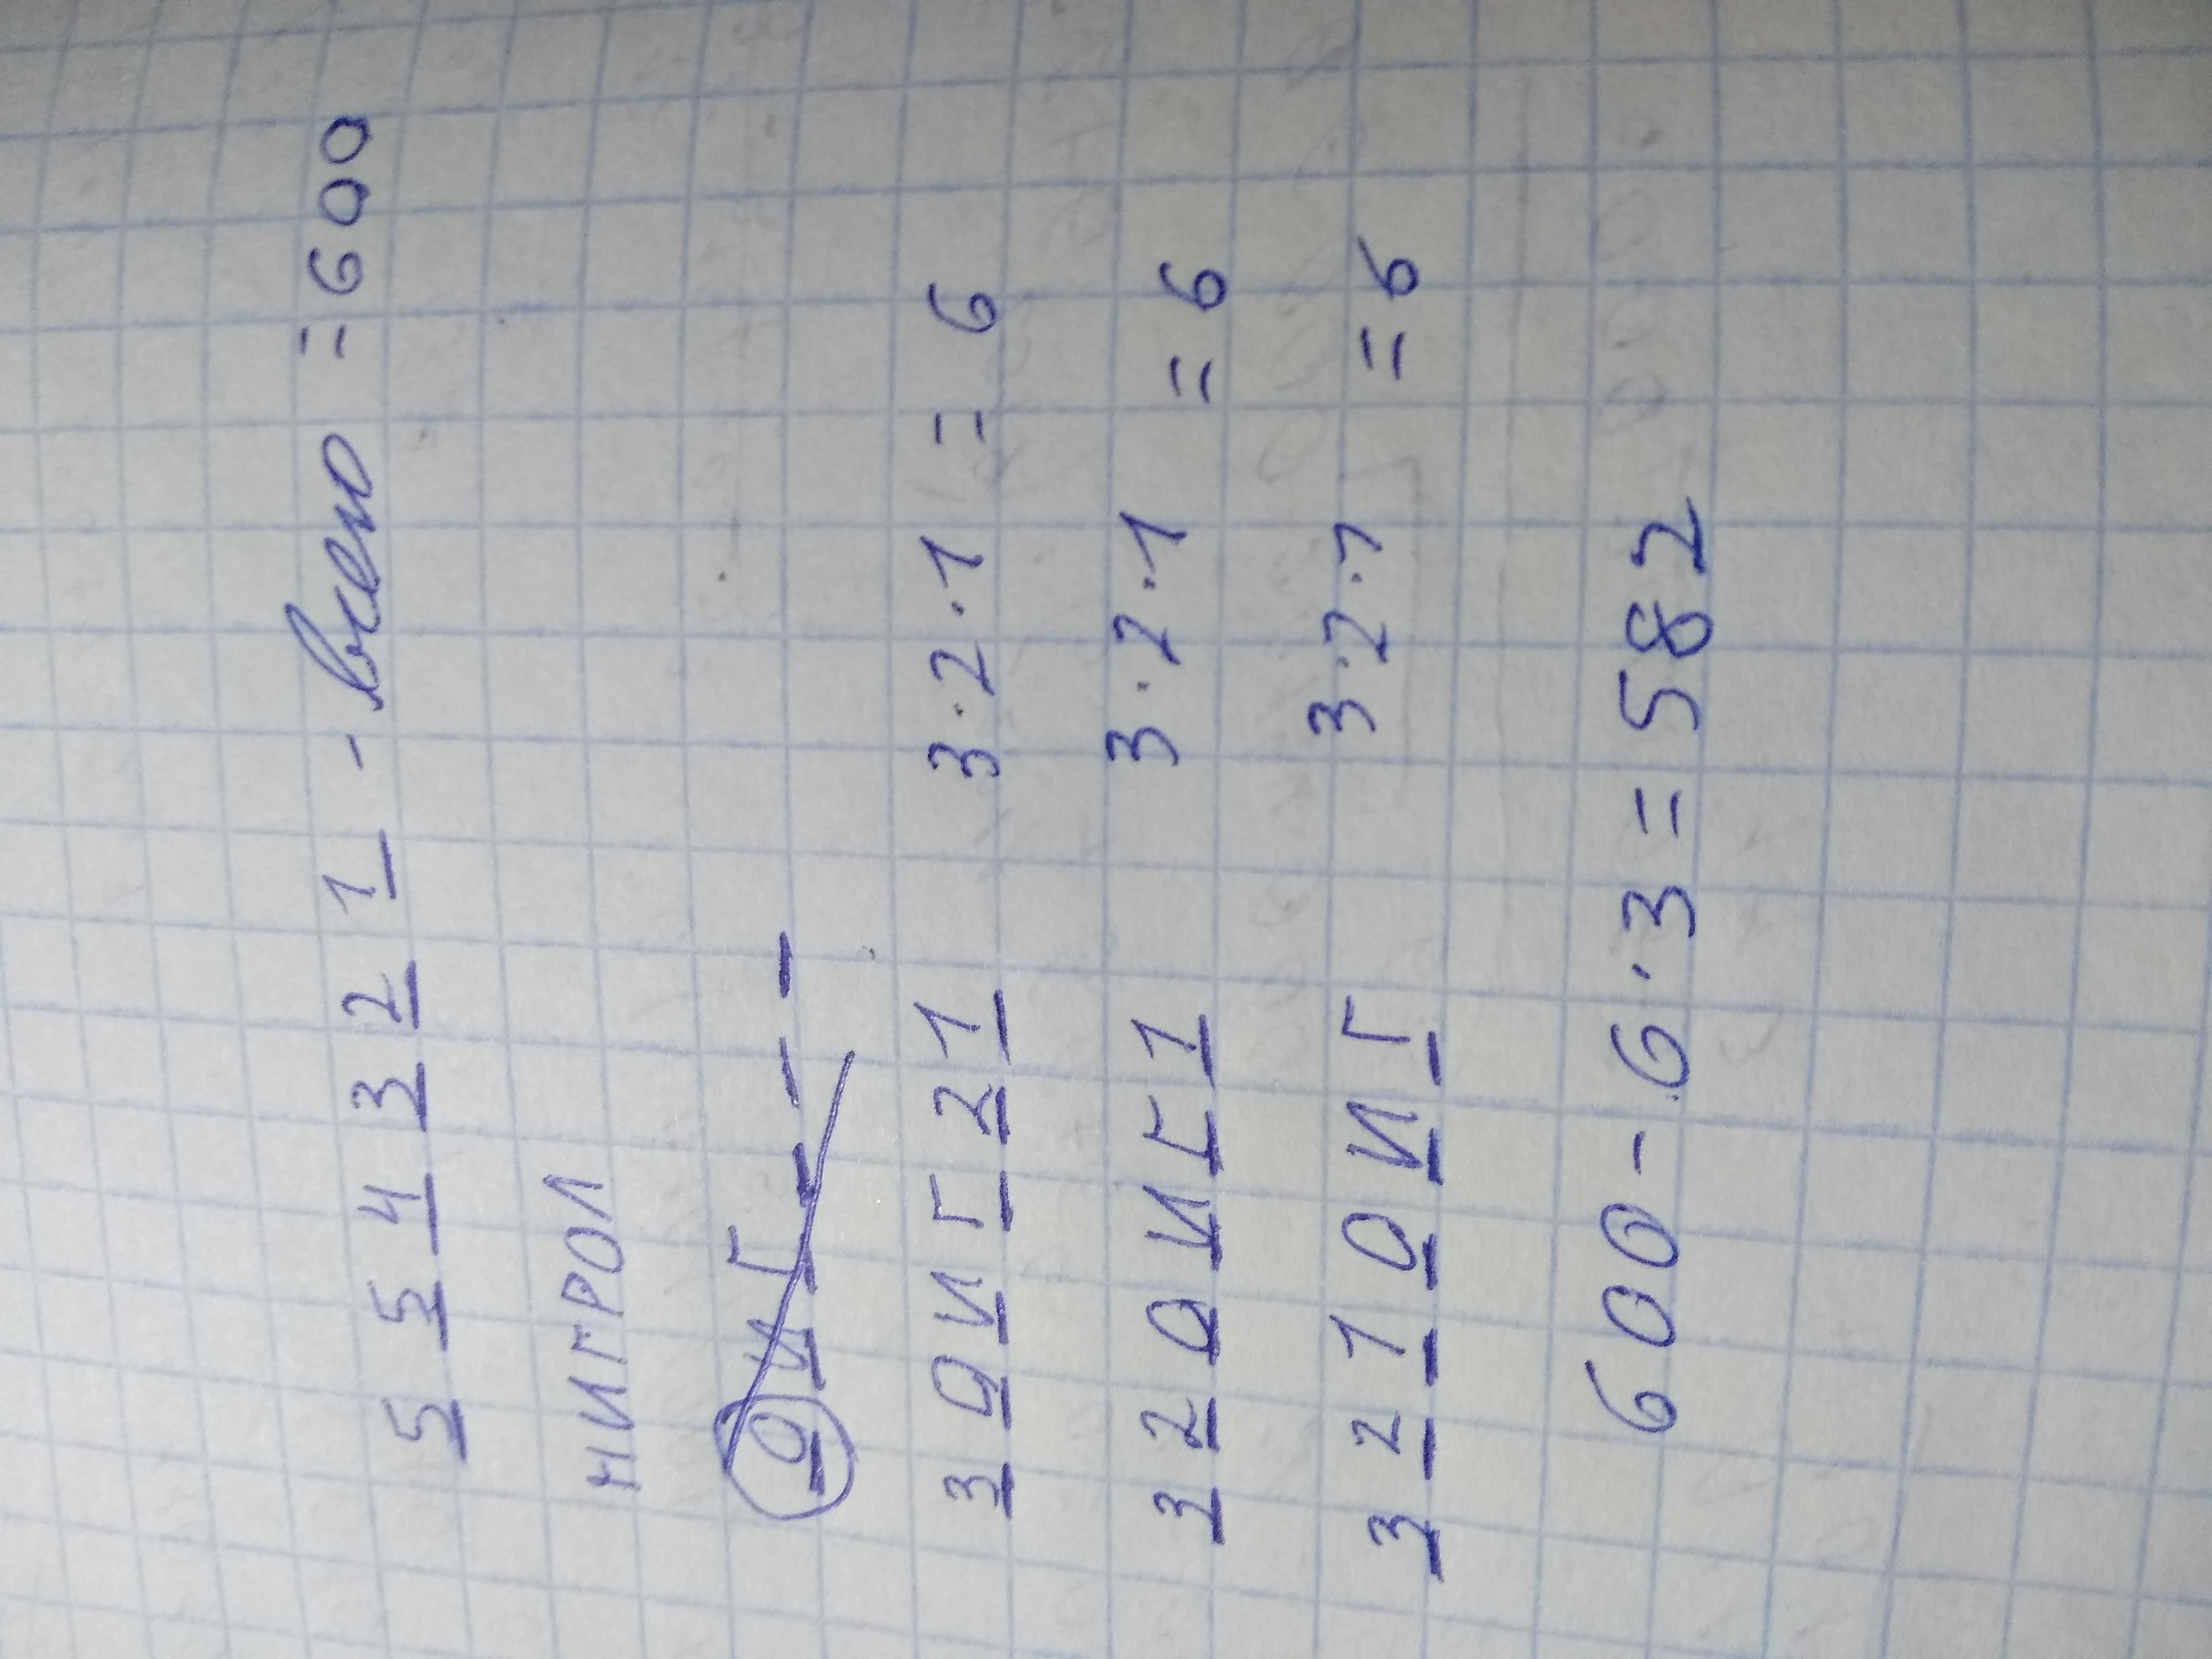 5 5 4 3 2 1 - всего = 600
НИГРОЛ
О И Г _ _ _
3 О И Г 2 1 3·2·1 = 6
3 2 О И Г 1 3·2·1 = 6
3 2 1 О И Г 3·2·1 = 6
600 - 6·3 = 582